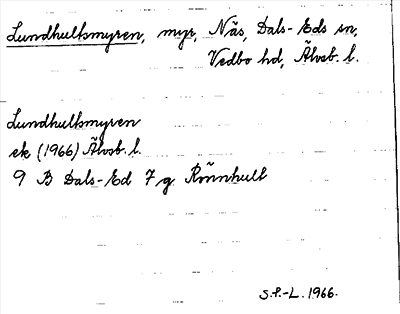 Lundhultsmyren, myr, Näs, Dals-Eds sn,
Vedbo hd, Älvsb. l.
Lundhultsmyren
ek (1966) Älvsb. l.
9 B Dals-Ed 7 g Rönnhult
S.F.-L. 1966.